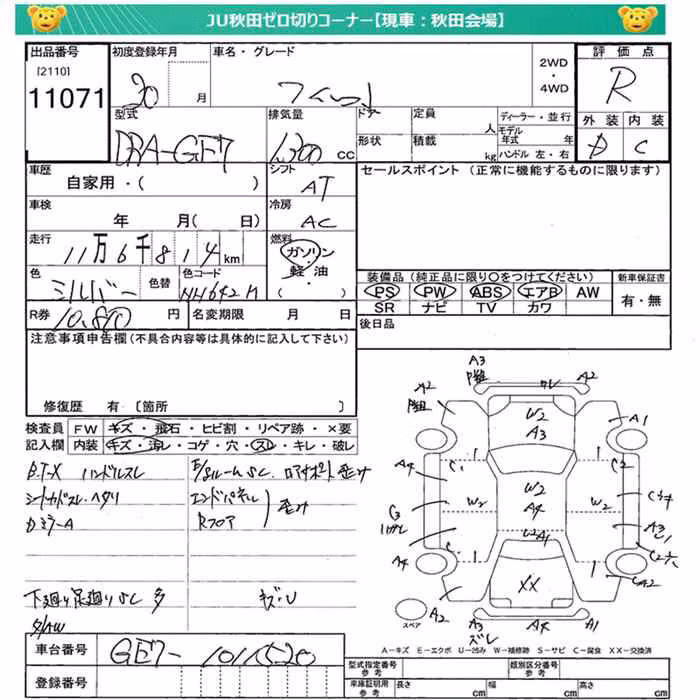 JU秋田ゼロ切りコーナー【現車：秋田会場】
出品番号
[2110]
11071
初度登録年月
20 月
車名・グレード
フィット
2WD
・
4WD
評価点
R
外装 内装
D C
型式
DBA-GE7
排気量
1,300 CC
ドア
定員
人
ディーラー・並行
モデル年式 年
形状
積載
kg
ハンドル 左・右
車歴
自家用・( )
シフト
AT
車検
年 月( 日)
冷房
AC
走行
11万6千814km
燃料
ガソリン
・
軽・油
( )
色
シルバー
色替
色コード
NH642M
R券
10,870 円
名変期限 月 日
セールスポイント (正常に機能するものに限ります)
装備品(純正品に限り○をつけてください)
PS PW ABS エアB AW
SR ナビ TV カワ
新車保証書
有・無
後日品
注意事項申告欄(不具合内容等は具体的に記入して下さい)
修復歴 有・〔箇所 〕
検査員記入欄
FW キズ・飛石・ヒビ割・リペア跡・×要
内装 キズ・汚レ・コゲ・穴・スレ・キレ・破レ
B.T-X ハンドルスレ
Dミラ-A
エンドパネル
Rフロア
歪み
キズ・U
下廻り足廻りSC 多
車台番号
GE7-
登録番号
A3
A2
W2
A3
A2
A1
C1
C2
A4
W2
A4
W2
W2
C3
C34
A3
W2A1
A4
XX
A2
A3
ズレ
A4
A1
スペア
A-キズ E-エクボ U-凹み W-補修跡 S-サビ C-腐食 XX-交換済
型式指定番号
参考
類別区分番号
参考
車庫証明用
参考
長さ cm
幅 cm
高さ cm